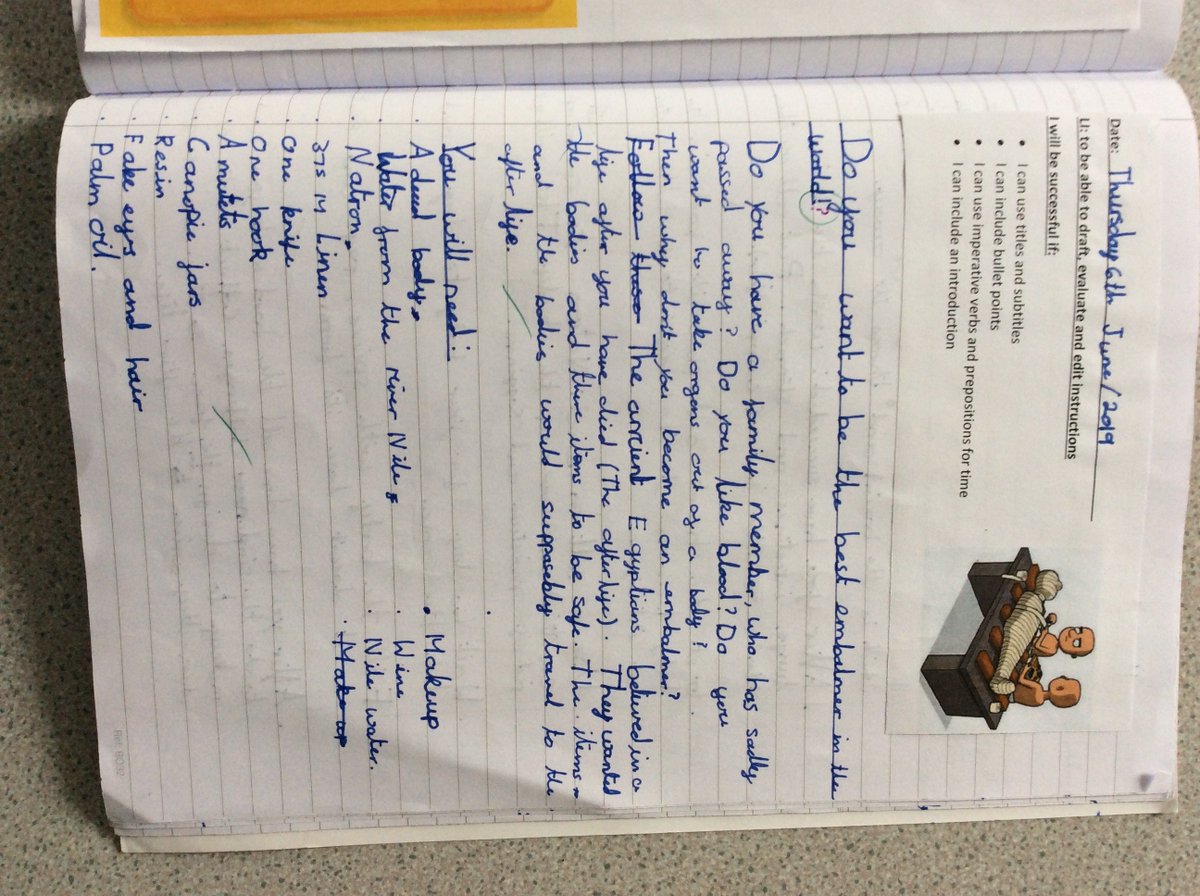 Date: Thursday 6th June/2019
LI: to be able to draft, evaluate and edit instructions
I will be successful if:
• I can use titles and subtitles
• I can include bullet points
• I can use imperative verbs and prepositions for time
• I can include an introduction
Do you want to be the best embalmer in the
world!?
Do you have a family member, who has sadly
passed away? Do you like blood? Do you
want to take organs out of a body?
Then why dont you become an embalmer?
Follow these The ancient Egyptians belived in a
life after you have died (The after life). They wanted
the bodies and there items to be safe. The items
and the bodies would supposebly travel to the
after life.
You will need:
• A dead body.
• Water from the river Nile
• Natron.
• 375 M Linen
• One knife
• One hook
• Amulets
• Canopic jars
• Resin
• Fake eyes and hair
• Palm oil.
• Makeup
• Wine
• Nile water.
• Make up
Ref: 8032